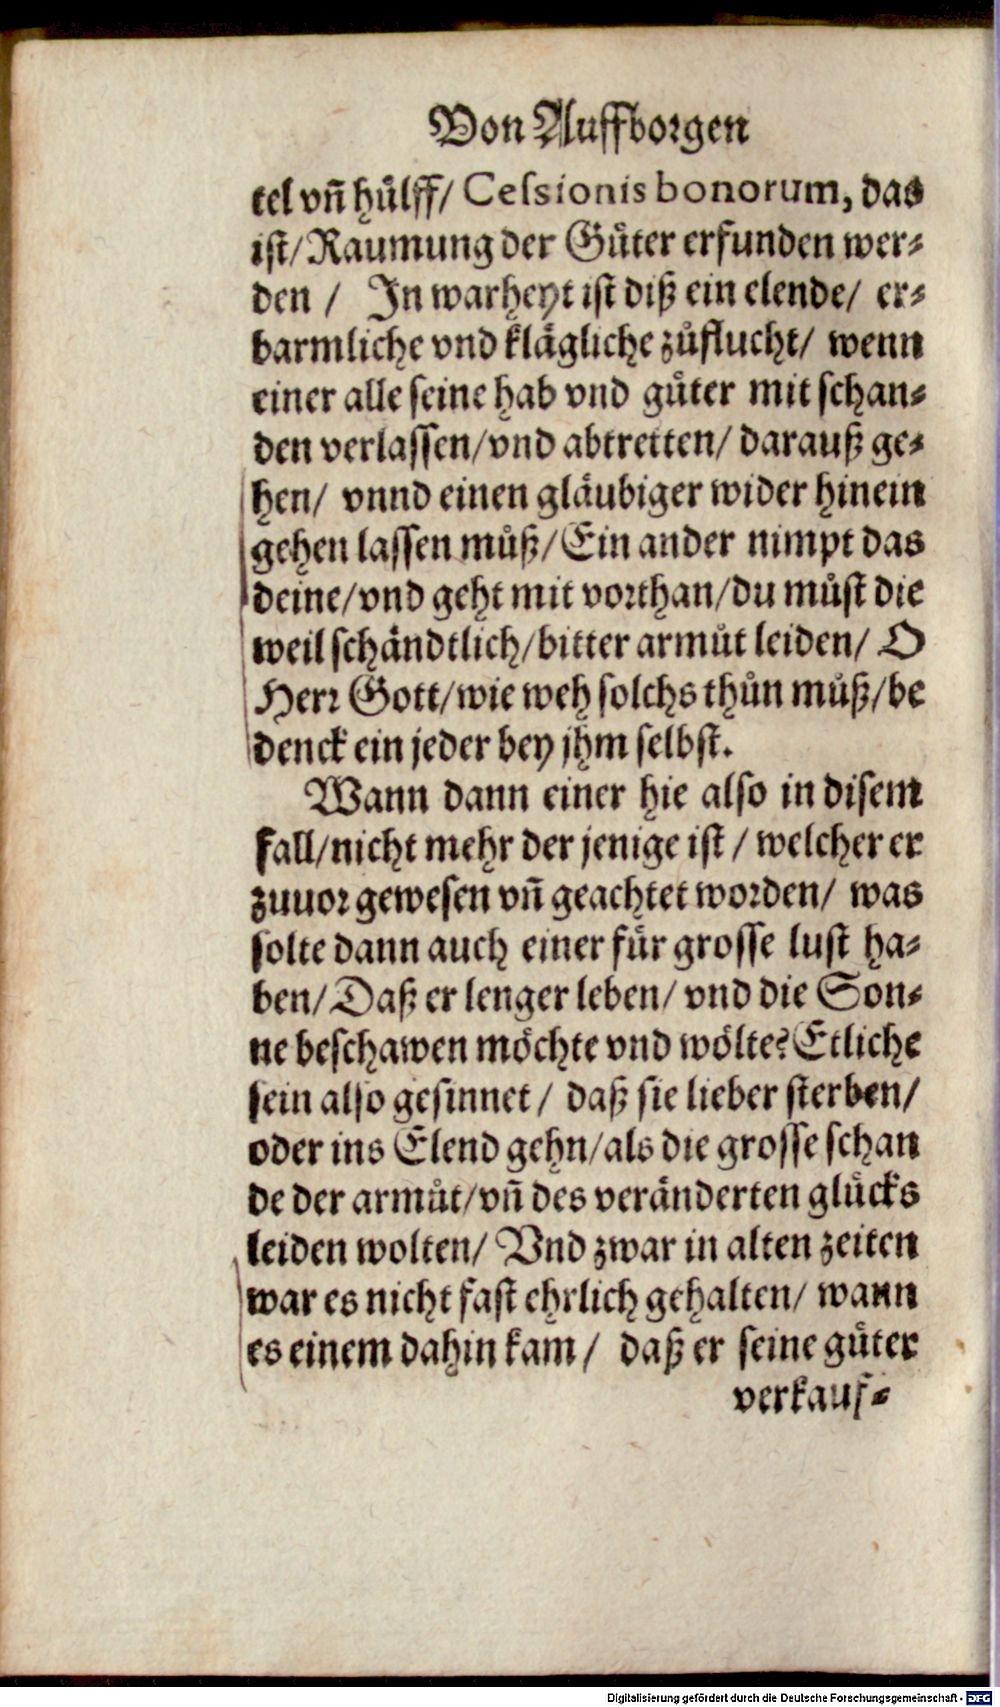 Von Auffborgen
tel vñ huͤlff/ Cessionis bonorum, das
ist/ Raumung der Guͤter erfunden wer-
den / In warheyt ist diß ein elende/ er-
barmliche vnd klaͤgliche zůflucht/ wenn
einer alle seine hab vnd guͤter mit schan-
den verlassen/vnd abtretten/ darauß ge-
hen/ vnnd einen glaͤubiger wider hinein
gehen lassen můß/ Ein ander nimpt das
deine/vnd geht mit vorthan/du můst die
weil schaͤndtlich/bitter armůt leiden/ O
Herr Gott/wie weh solchs thůn můß/be
denck ein jeder bey jhm selbst.
Wann dann einer hie also in disem
fall/nicht mehr der jenige ist / welcher er
zuuor gewesen vñ geachtet worden/ was
solte dann auch einer fuͤr grosse lust ha-
ben/ Daß er lenger leben/ vnd die Son-
ne beschawen moͤchte vnd woͤlte? Etliche
sein also gesinnet / daß sie lieber sterben/
oder ins Elend gehn/als die grosse schan
de der armůt/vñ des veraͤnderten gluͤcks
leiden wolten/ Vnd zwar in alten zeiten
war es nicht fast ehrlich gehalten/ wann
es einem dahin kam / daß er seine guͤter
verkauf-
Digitalisierung gefördert durch die Deutsche Forschungsgemeinschaft - DFG